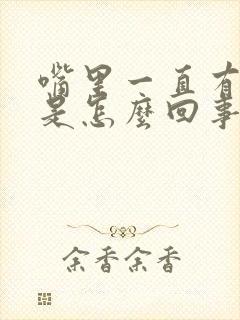 嘴里一直有
是怎麼回事
余香余香